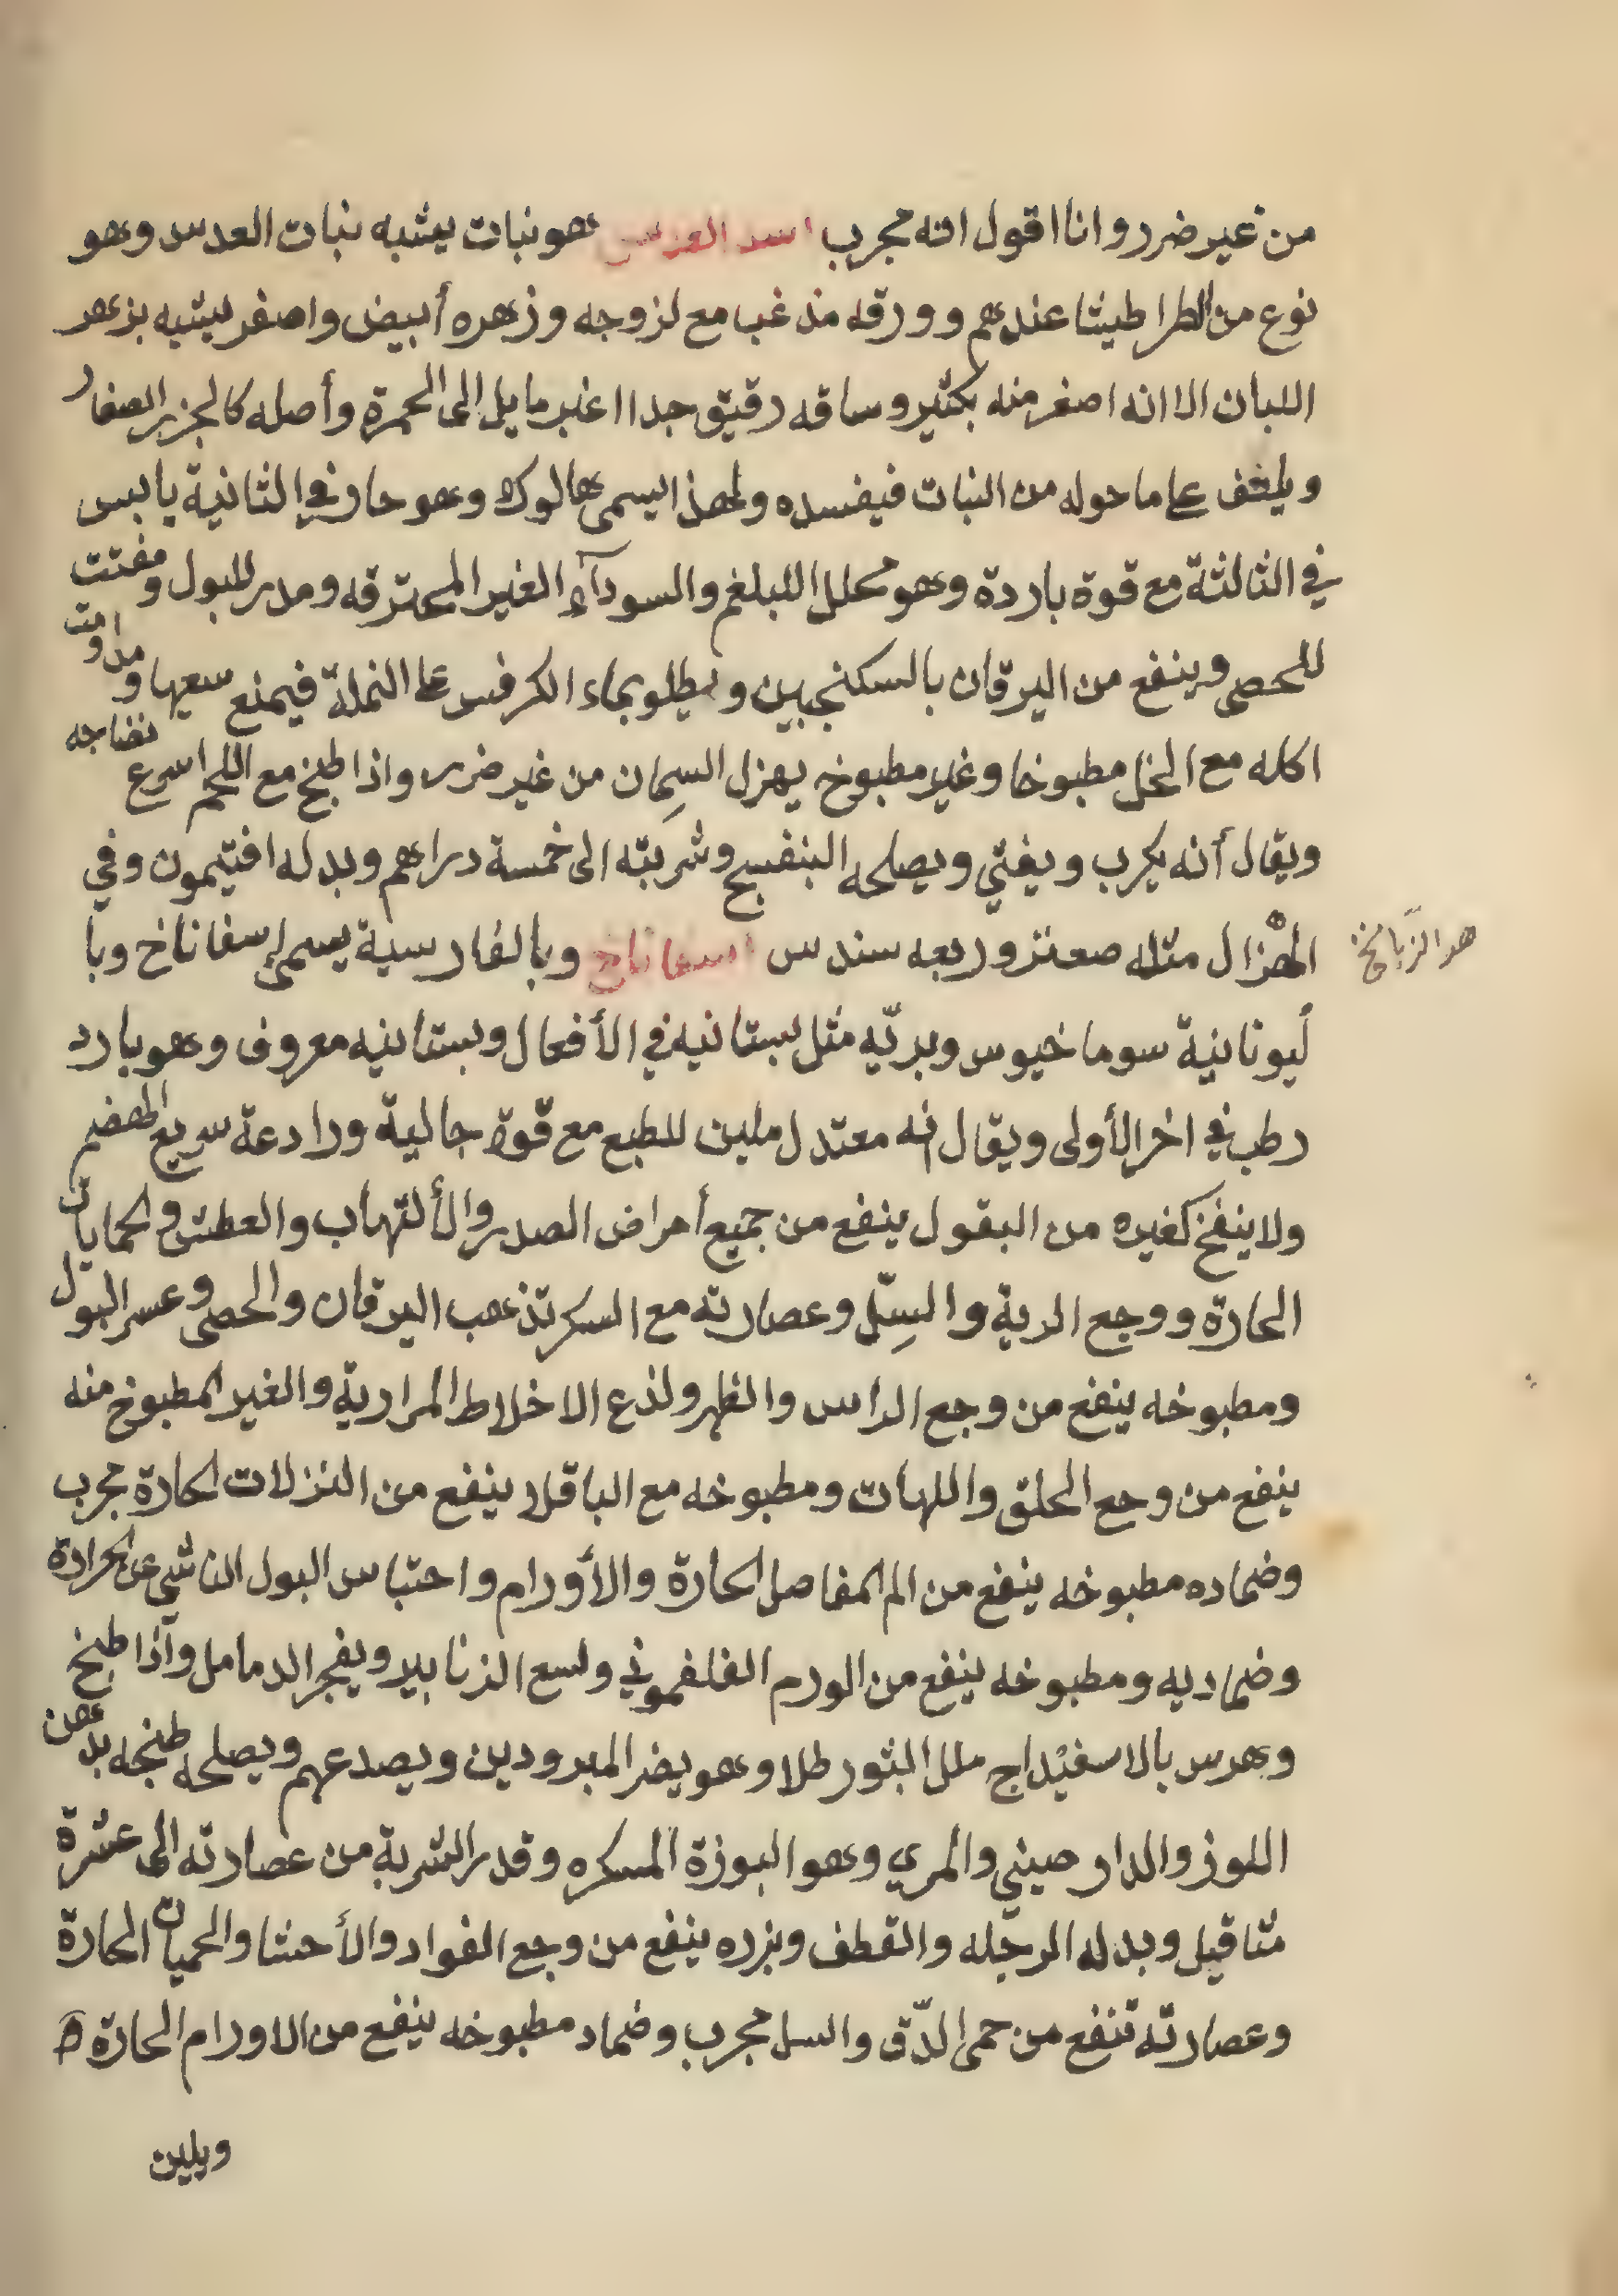 من غير ضرر وانا اقول انه مجرب اسد العدس هو نبات يشبه نبات العدس وهو
نوع من الطراطيشا عندهم وورقه مزغب مع لزوجه وزهره أبيض واصفر يشبه بزهر
اللبان الا انه اصغر منه بكثير وساقه رقيق جدا اغبر مايل الى الحمرة وأصله كالجزر الصغار
ويلتف على ما حوله من النبات فيفسده ولهذا يسمى هالوك وهو حار في الثانية يابس
في الثالثة مع قوة باردة وهو محلل للبلغم والسودآء الغير المحترقه ومدر للبول ومفتت
للحصى وينفع من اليرقان بالسكنجبين ويطلو بماء الكرفس على النملة فيمنع سعيها ومداومت
اكله مع الخل مطبوخا وغير مطبوخ يهزل السِمان من غير ضرر واذا طبخ مع اللحم اسرع نضاجه
ويقال أنه يكرب ويغثي ويصلحه البنفسج وشربته الى خمسة دراهم وبدله افتيمون وفي
الهْزال مثله صعتر وربعه سندس اسفاناخ وبالفارسية يسمى إسفاناخ وبا
هو الزبانخ
ليونانية سوماخيوس وبريّه مثل بستانيه في الأفعال وبستانيه معروف وهو بارد
رطب في اخر الأولى ويقال انه معتدل ملين للطبع مع قوة جالية ورادعة سريع الهضم
ولا ينفخ كغيره من البقول ينفع من جميع أمراض الصدر والألتهاب والعطش والحمايات
الحارة ووجع الرية والسِلّ وعصارته مع السكر تذهب اليرقان والحصى وعسر البول
ومطبوخه ينفع من وجع الراس والظهر ولذع الاخلاط المرارية والغير المطبوخ منه
ينفع من وجع الحلق واللهات ومطبوخه مع الباقلا ينفع من النزلات الحارة مجرب
وضماده مطبوخه ينفع من الم المفاصل الحارة والأورام واحتباس البول الناشي عن الحرارة
وضماد يه ومطبوخه ينفع من الورم الفلغموني ولسع الزنابير ويفجر الدمامل وآذا طبخ
وهرس بالاسفيْداج ملل البثور طلا وهو يضر المبرودين ويصدعهم ويصلحه طبخه بدهن
اللوز والدار صيني والمري وهو البوزة المسكره وقدر الشربة من عصارته الى عشرة
مثاقيل وبدله الرجّله والقطف وبزره ينفع من وجع الفواد والأحشا والحميات الحارة
وعصارته تنفع من حمى الدّق والسل مجرب وضماد مطبوخه ينفع من الاورام الحارة
ويلين